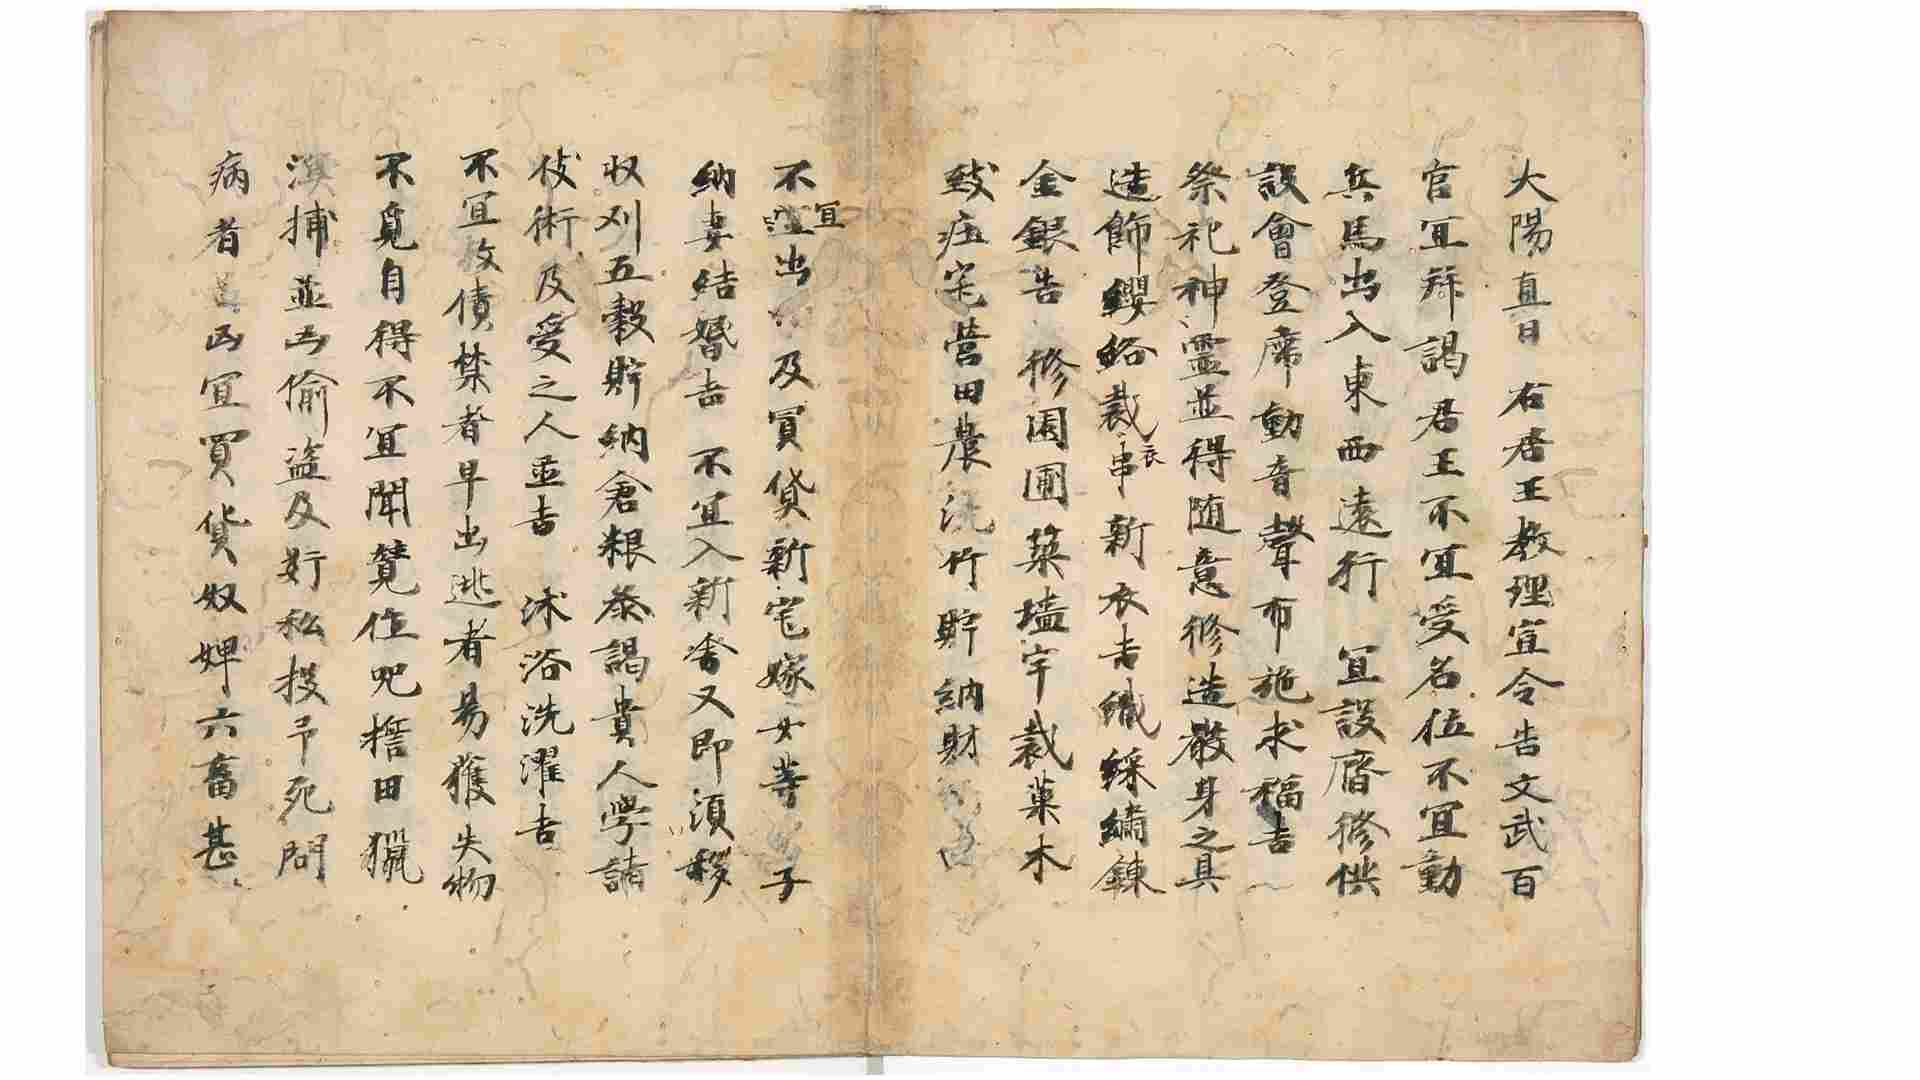 大陽真日 右君王教理宣令告文武百
官冝拜謁君王不冝受名位不冝動
兵馬出入東西遠行 冝設齋修供
設會登席動音聲布施求福吉
祭祀神靈並得随意修造嚴身之具
造飾纓絡裁衣串新衣吉織綵繡鍊
金銀吉 修園圃築墻宇栽菓木
宅營田農洗竹貯納財
不冝出及買貨新宅嫁女等子
納妻結婚吉 不冝入新舍又即須移
収刈五穀貯納倉粮叅謁貴人學請
伎術及受之人並吉 沐浴洗濯吉
不冝放債禁者早出逃者易獲失物
不覓自得不冝聞讚位呪揩田獵
漁捕並凶偷盜及奸私投弔死問
病者凶宜買貨奴婢六畜甚